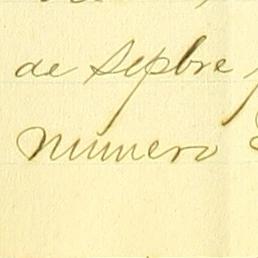 de Sepbre
numero